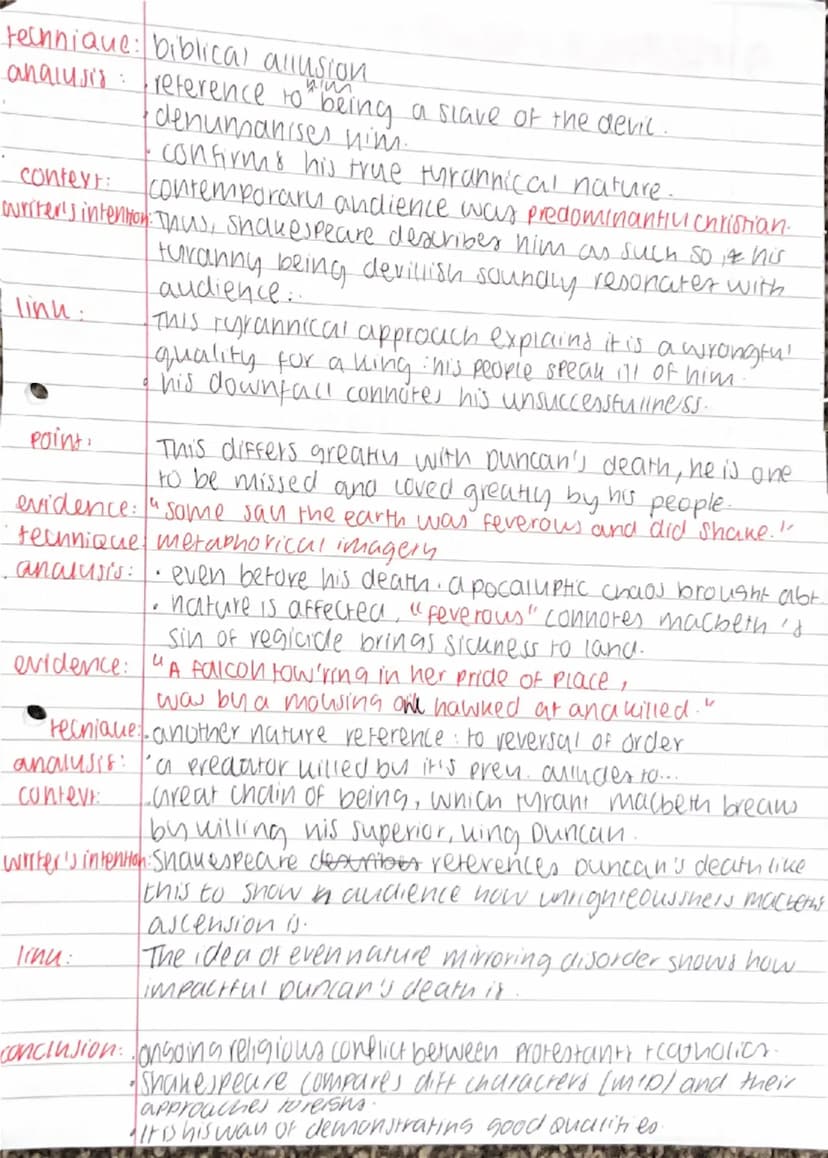 technique: biblical allusion
analysis: · reference to him being a slave of the devil.
· denumanises him.
· confirms his true tyrannical nature.
context: contemporary audience was predominantly christian.
writer's intention: Thus, Shakespeare describes him as such so, his
tyranny being devillish soundly resonates with
audience.
link: This tyrannical approach explains it is a wrongful
quality for a king: his people speak ill of him.
· his downfall connotes his unsuccessfullness.
point: This differs greatly with Duncan's death, he is one
to be missed and loved greatly by his people.
evidence: "some say the earth was feverous and did shake."
technique: metaphorical imagery
analysis: · even before his death. apocalyptic chaos brought abt.
· nature is affected, "feverous" connotes macbeth's
sin of regicide brings sickness to land.
evidence: "A falcon tow'ring in her pride of place,
was by a mousing owl hawked at and killed."
tecnique: · another nature reference: to reversal of order
analysis: · a predator killed by it's prey. alludes to...
context: · Great chain of being, which tyrant macbeth breaks
by killing his superior, king Duncan.
writer's intention: Shakespeare describes references Duncan's death like
this to show audience how unrighteousness macbeth's
ascension is.
link: The idea of even nature mirroring disorder shows how
impactful Duncan's death is.
conclusion: · ongoing religious conflict between protestants + catholics.
· Shakespeare compares diff characters (M+D) and their
approaches to reigns.
· It is his way of demonstrating good qualities.